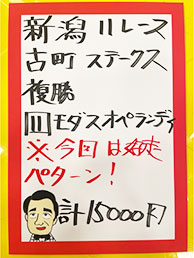 新潟11レース
古町ステークス
複勝
11 モダスオペランディ
※今回は好走
パターン!
計15000円